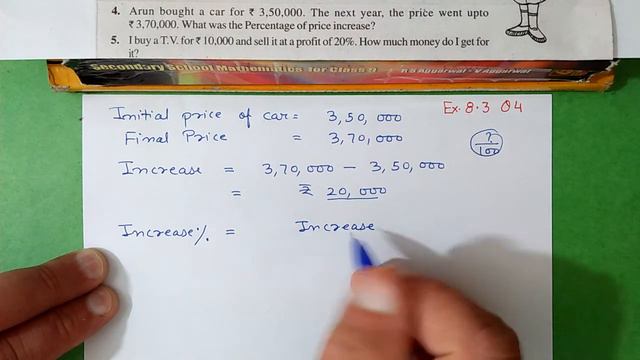 4. Arun bought a car for ₹ 3,50,000. The next year, the price went upto
₹ 3,70,000. What was the Percentage of price increase?
5. I buy a T.V. for ₹ 10,000 and sell it at a profit of 20%. How much money do I get for
it?
Secondary School Mathematics for Class 9 R S Aggarwal V Aggarwal
Ex. 8.3 Q4
Initial price of car = 3,50,000
Final Price = 3,70,000
?/100
Increase = 3,70,000 - 3,50,000
= ₹ 20,000
Increase% = Increase